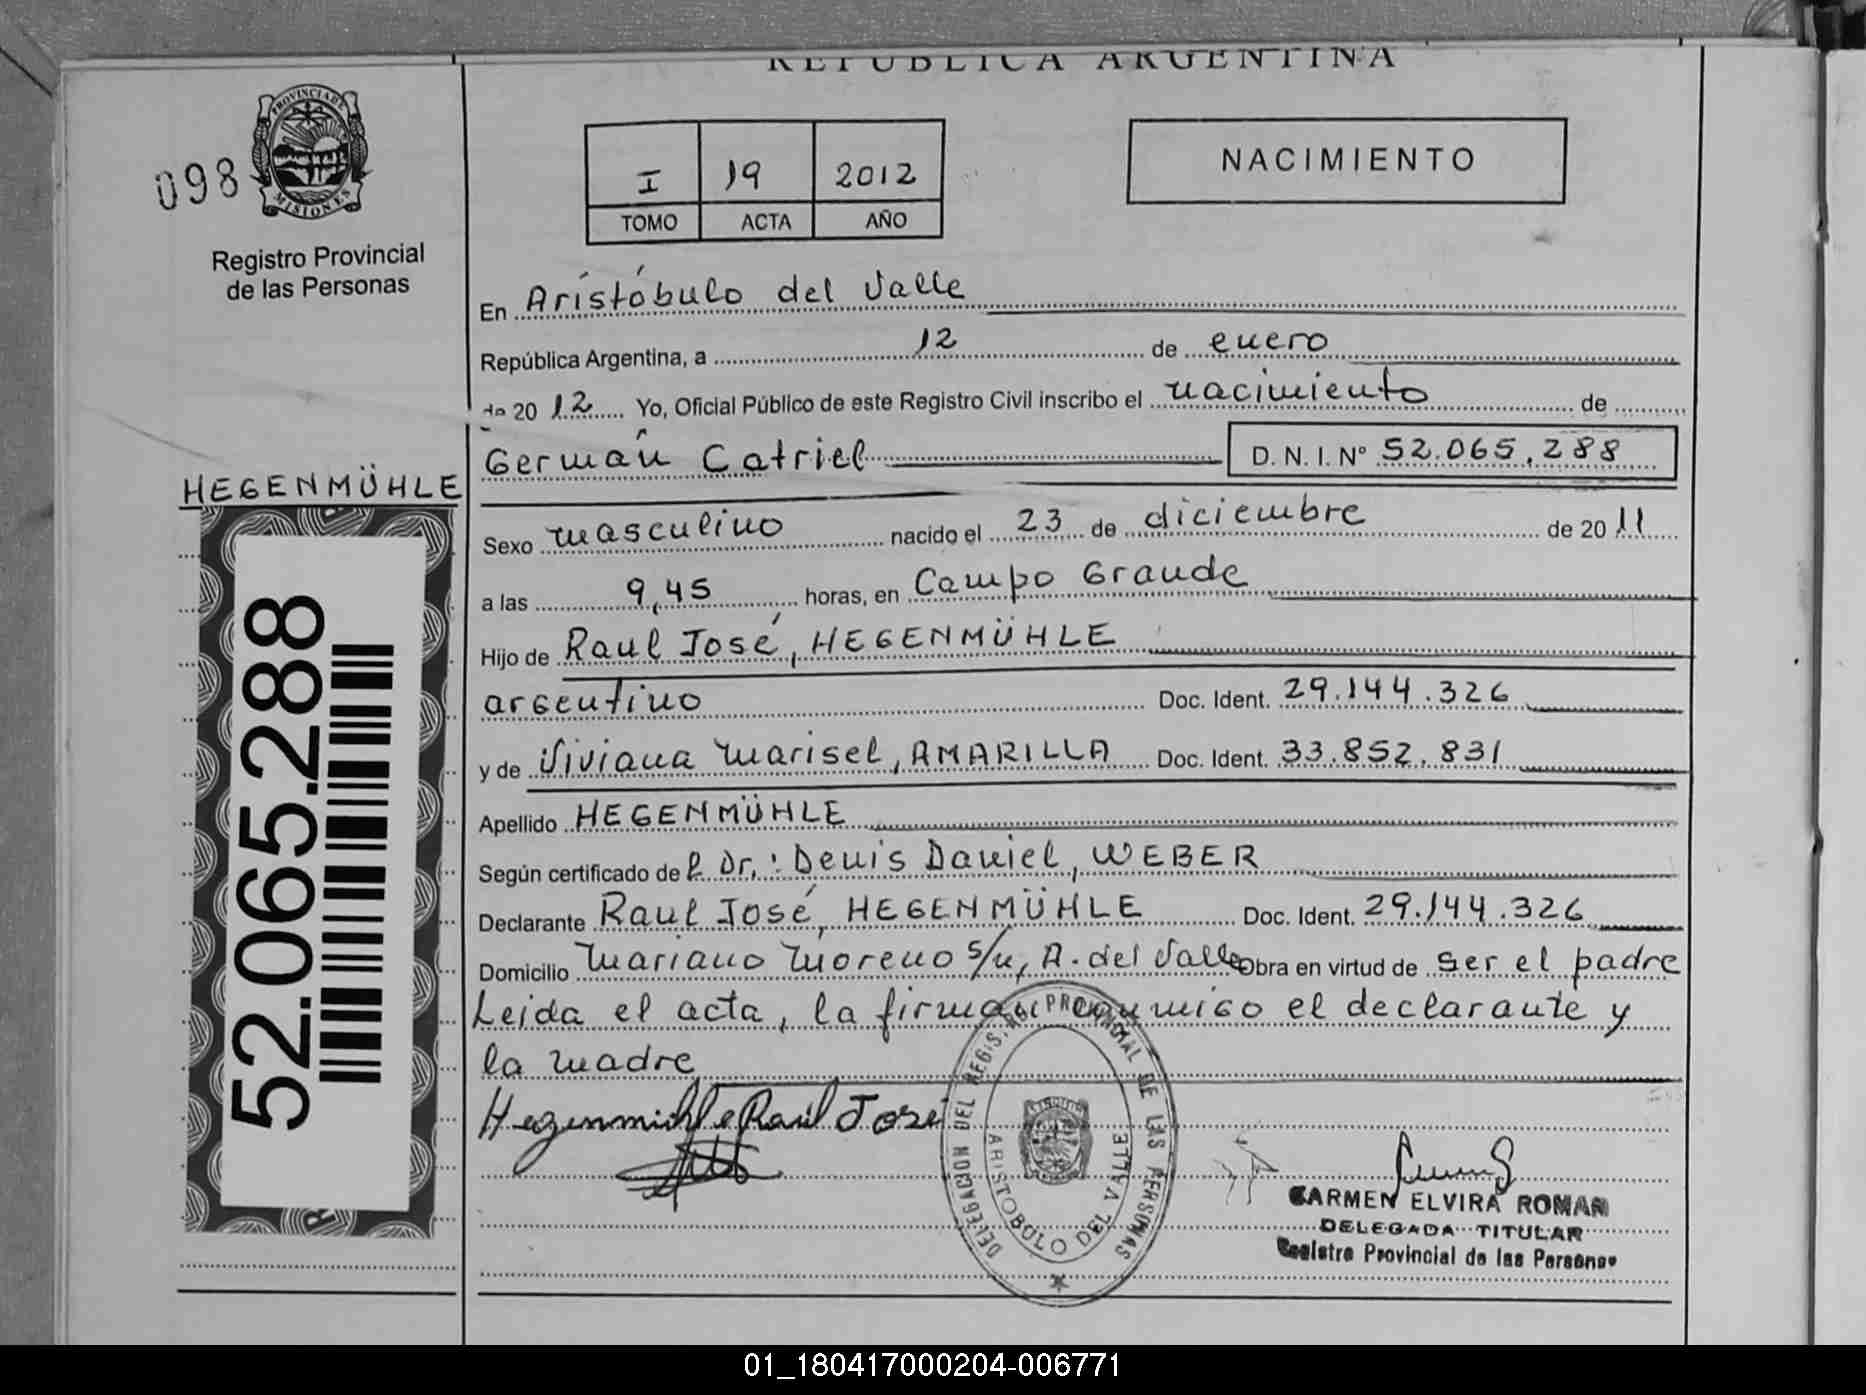 REPUBLICA ARGENTINA
PROVINCIA DE
MISIONES
098
Registro Provincial
de las Personas
I 19 2012
TOMO ACTA AÑO
NACIMIENTO
En Aristóbulo del Valle
República Argentina, a 12 de enero
de 20 12 Yo, Oficial Público de este Registro Civil inscribo el nacimiento de
Germán Catriel D.N.I.Nº 52.065.288
HEGENMÜHLE
Sexo masculino nacido el 23 de diciembre de 20 11
a las 9,45 horas, en Campo Grande
Hijo de Raul José, HEGENMÜHLE
argentino Doc. Ident. 29.144.326
y de Viviana Marisel, AMARILLA Doc. Ident. 33.852.831
Apellido HEGENMÜHLE
Según certificado de l Dr.: Denis Daniel, WEBER
Declarante Raul José, HEGENMÜHLE Doc. Ident. 29.144.326
Domicilio Mariano Moreno s/n, A. del Valle Obra en virtud de ser el padre
Leida el acta, la firman conmigo el declarante y
la madre
52.065.288
Hegenmühle Raúl José
DELEGACION DEL REGIST. PROVINCIAL DE LAS PERSONAS
ARISTOBULO DEL VALLE
CARMEN ELVIRA ROMAN
DELEGADA TITULAR
Registro Provincial de las Personas
01_180417000204-006771